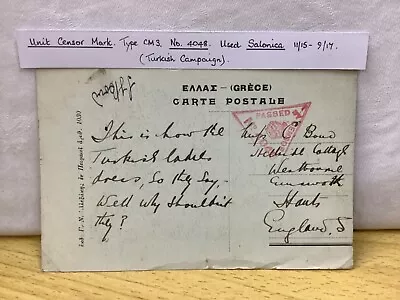 Unit Censor Mark. Type CM3. No. 4048. Used Salonica 11/15 - 9/17.
(Turkish Campaign).
ΕΛΛΑΣ—(GRÈCE)
CARTE POSTALE
PASSED
This is how the
Turkish ladies
dress, So they say,
Well why shouldn't
they?
Miss C Bond
Cottage
Westbourne
Emsworth
Hants
England